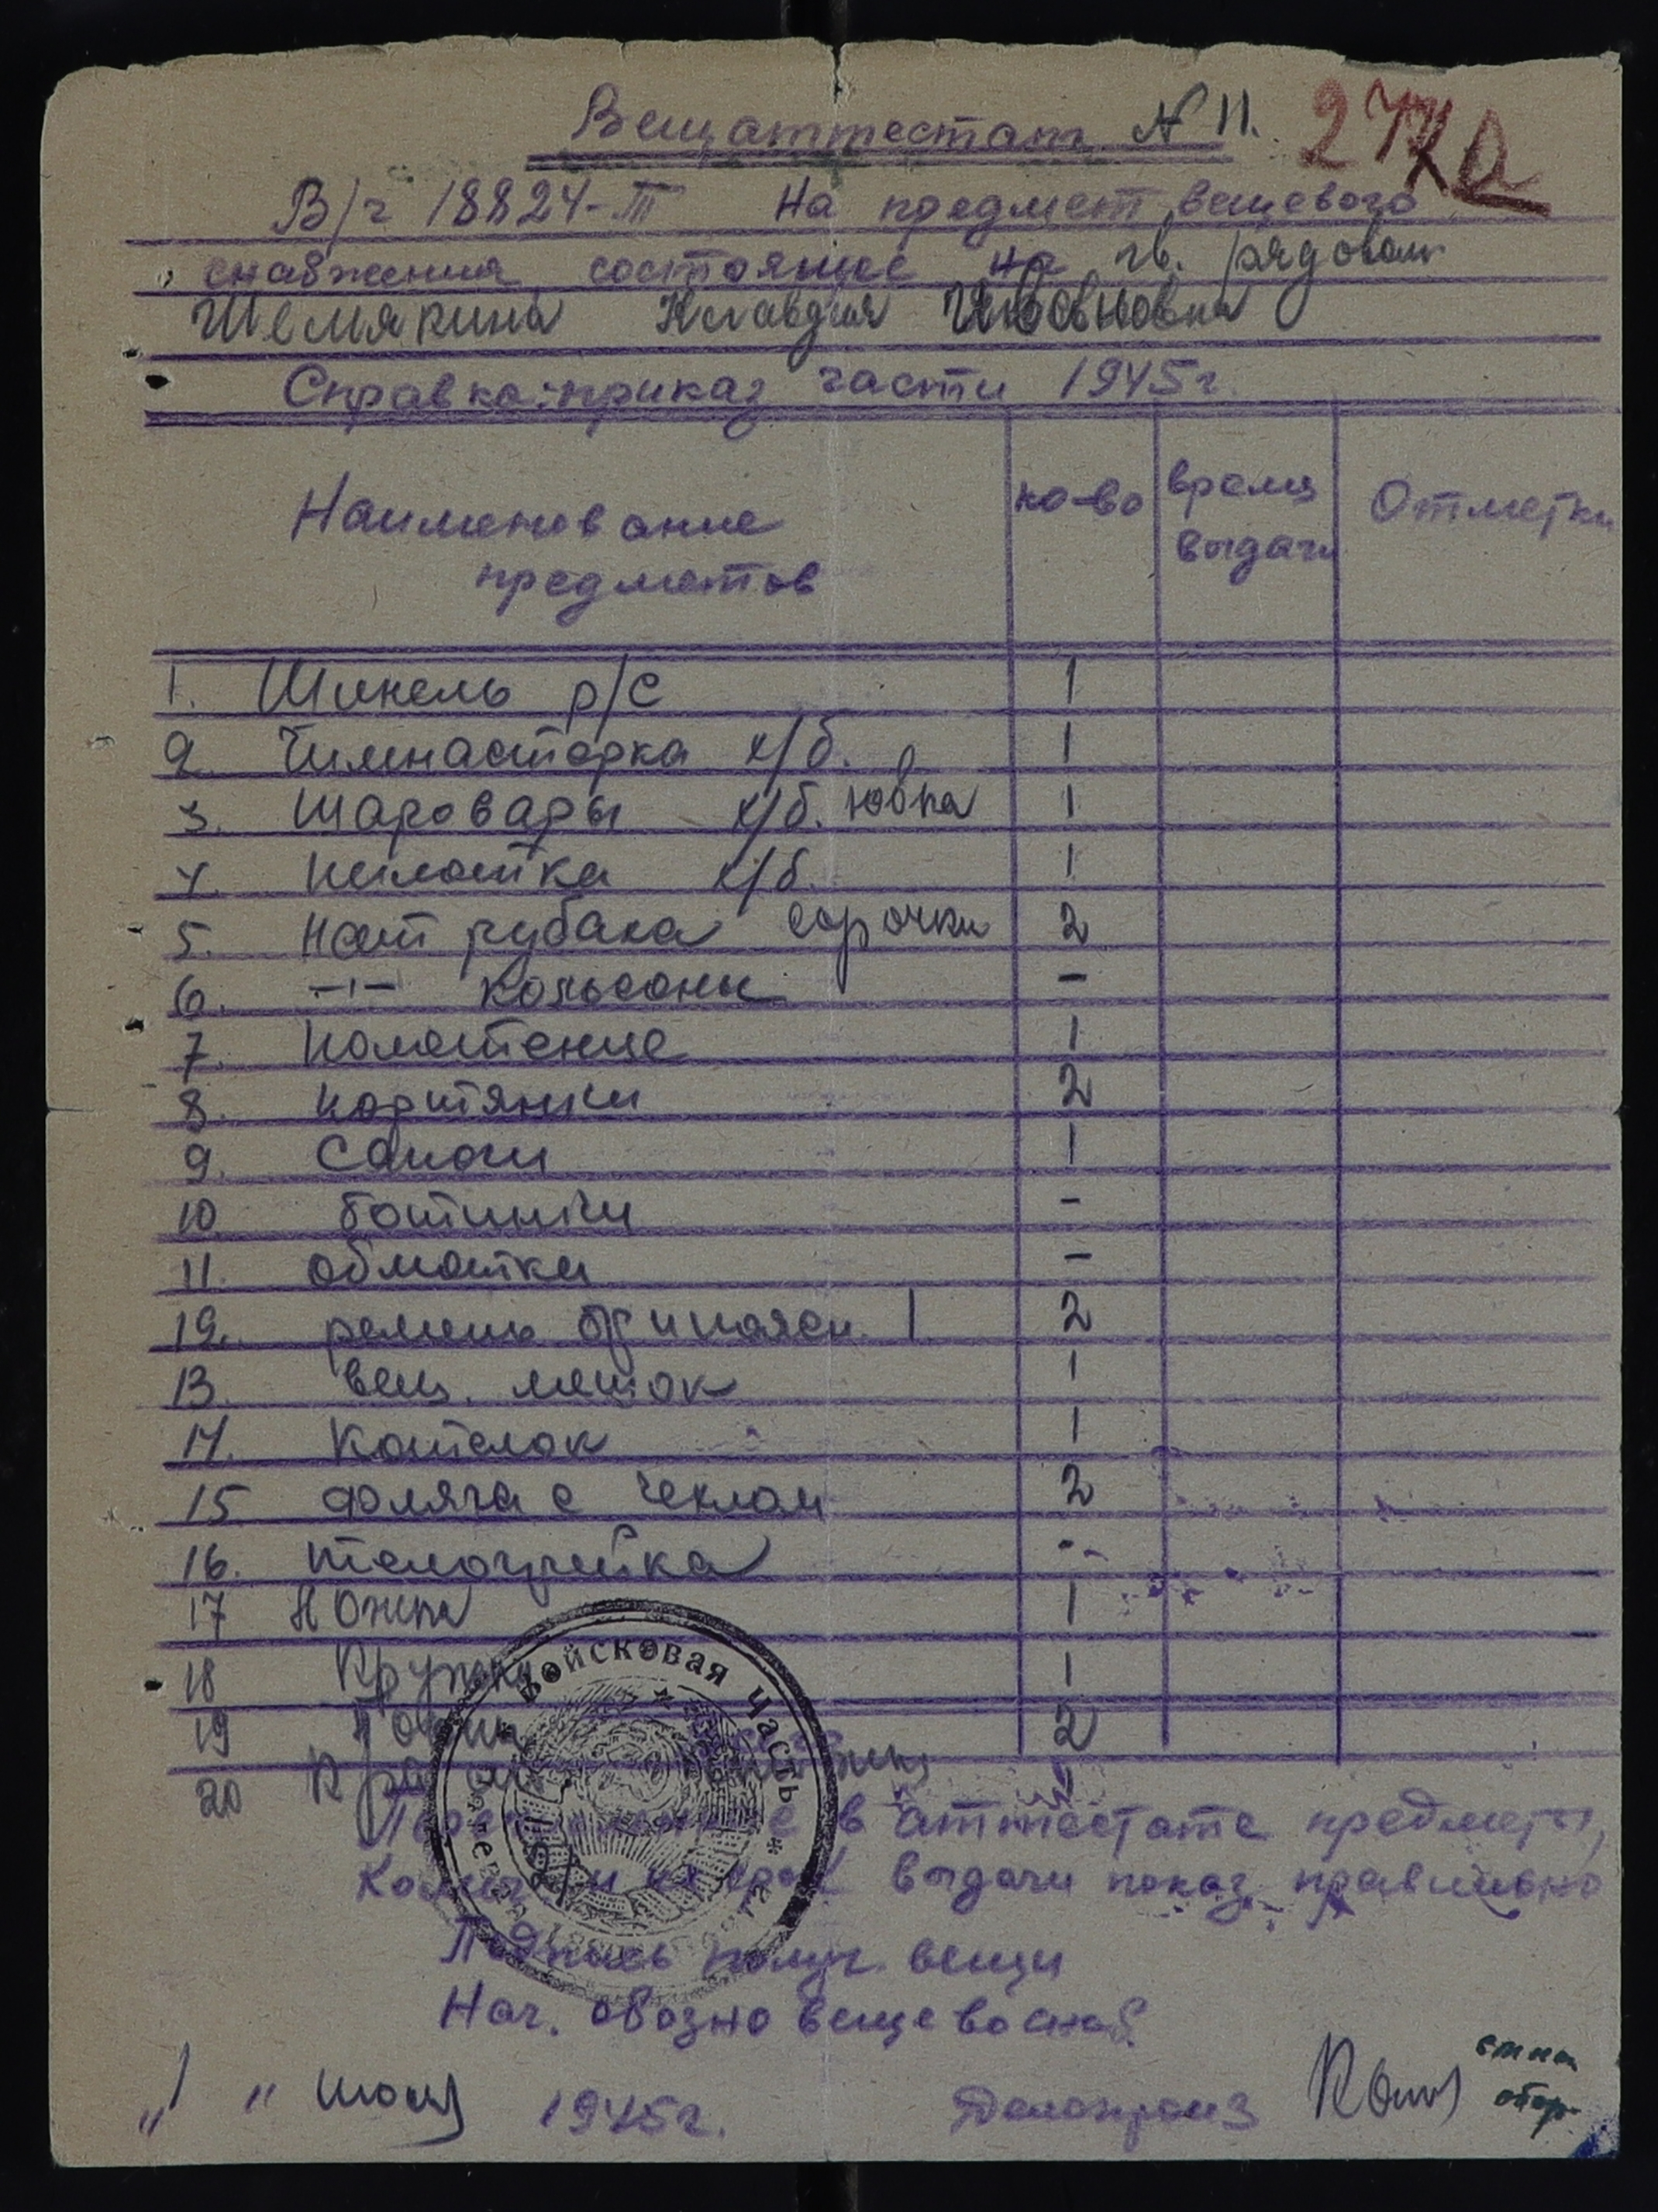 Вещаттестат N 11.
27
В/ч 18824-Т На предмет вещевого
снабжения состоящее на гв. рядовом
Шемякина Клавдия
Справка: приказ части 1945 г.
Наименование предметов
ко-во
время выдачи
Отметки
1. Шинель р/с 1
2. Гимнастерка х/б. 1
3. шаровары х/б. юбка 1
4. пилотка х/б. 1
5. нат рубаха сорочки 2
6. -"- кальсоны -
7. полотенце 1
8. портянки 2
9. Сапоги 1
10 ботинки -
11. обмотки -
12. ремень бр и поясн. 1 2
13. вещ. мешок 1
14. Котелок 1
15 фляга с чехлом 2
16. телогрейка --
17 Ложка 1
18 Кружка 1
19 2
20
Войсковая Часть
в аттестате предметы,
и их срок выдачи показ правильно
Подпись получ. вещи
Нач. обозно вещево снаб.
"1" июля 1945 г. Делопроиз